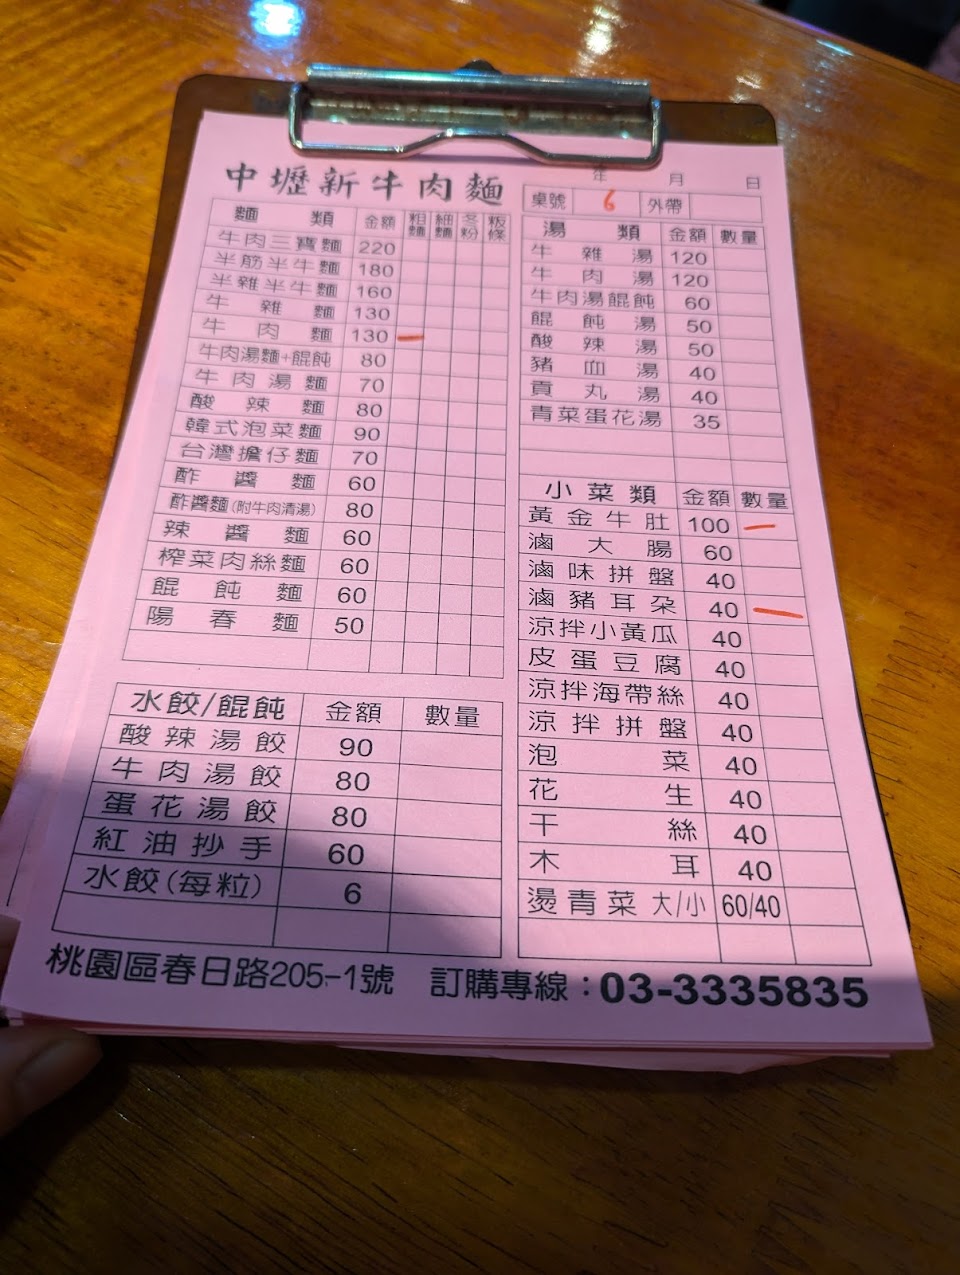 中壢新牛肉麵
年 月 日
桌號 6 外帶
麵類 金額 粗麵 細麵 冬粉 粄條
牛肉三寶麵 220
半筋半牛麵 180
半雜半牛麵 160
牛雜麵 130
牛肉麵 130 一
牛肉湯麵+餛飩 80
牛肉湯麵 70
酸辣麵 80
韓式泡菜麵 90
台灣擔仔麵 70
酢醬麵 60
酢醬麵(附牛肉清湯) 80
辣醬麵 60
榨菜肉絲麵 60
餛飩麵 60
陽春麵 50
水餃/餛飩 金額 數量
酸辣湯餃 90
牛肉湯餃 80
蛋花湯餃 80
紅油抄手 60
水餃(每粒) 6
湯類 金額 數量
牛雜湯 120
牛肉湯 120
牛肉湯餛飩 60
餛飩湯 50
酸辣湯 50
豬血湯 40
貢丸湯 40
青菜蛋花湯 35
小菜類 金額 數量
黃金牛肚 100 一
滷大腸 60
滷味拼盤 40
滷豬耳朶 40 一
涼拌小黃瓜 40
皮蛋豆腐 40
涼拌海帶絲 40
涼拌拼盤 40
泡菜 40
花生 40
干絲 40
木耳 40
燙青菜 大/小 60/40
桃園區春日路205-1號 訂購專線：03-3335835